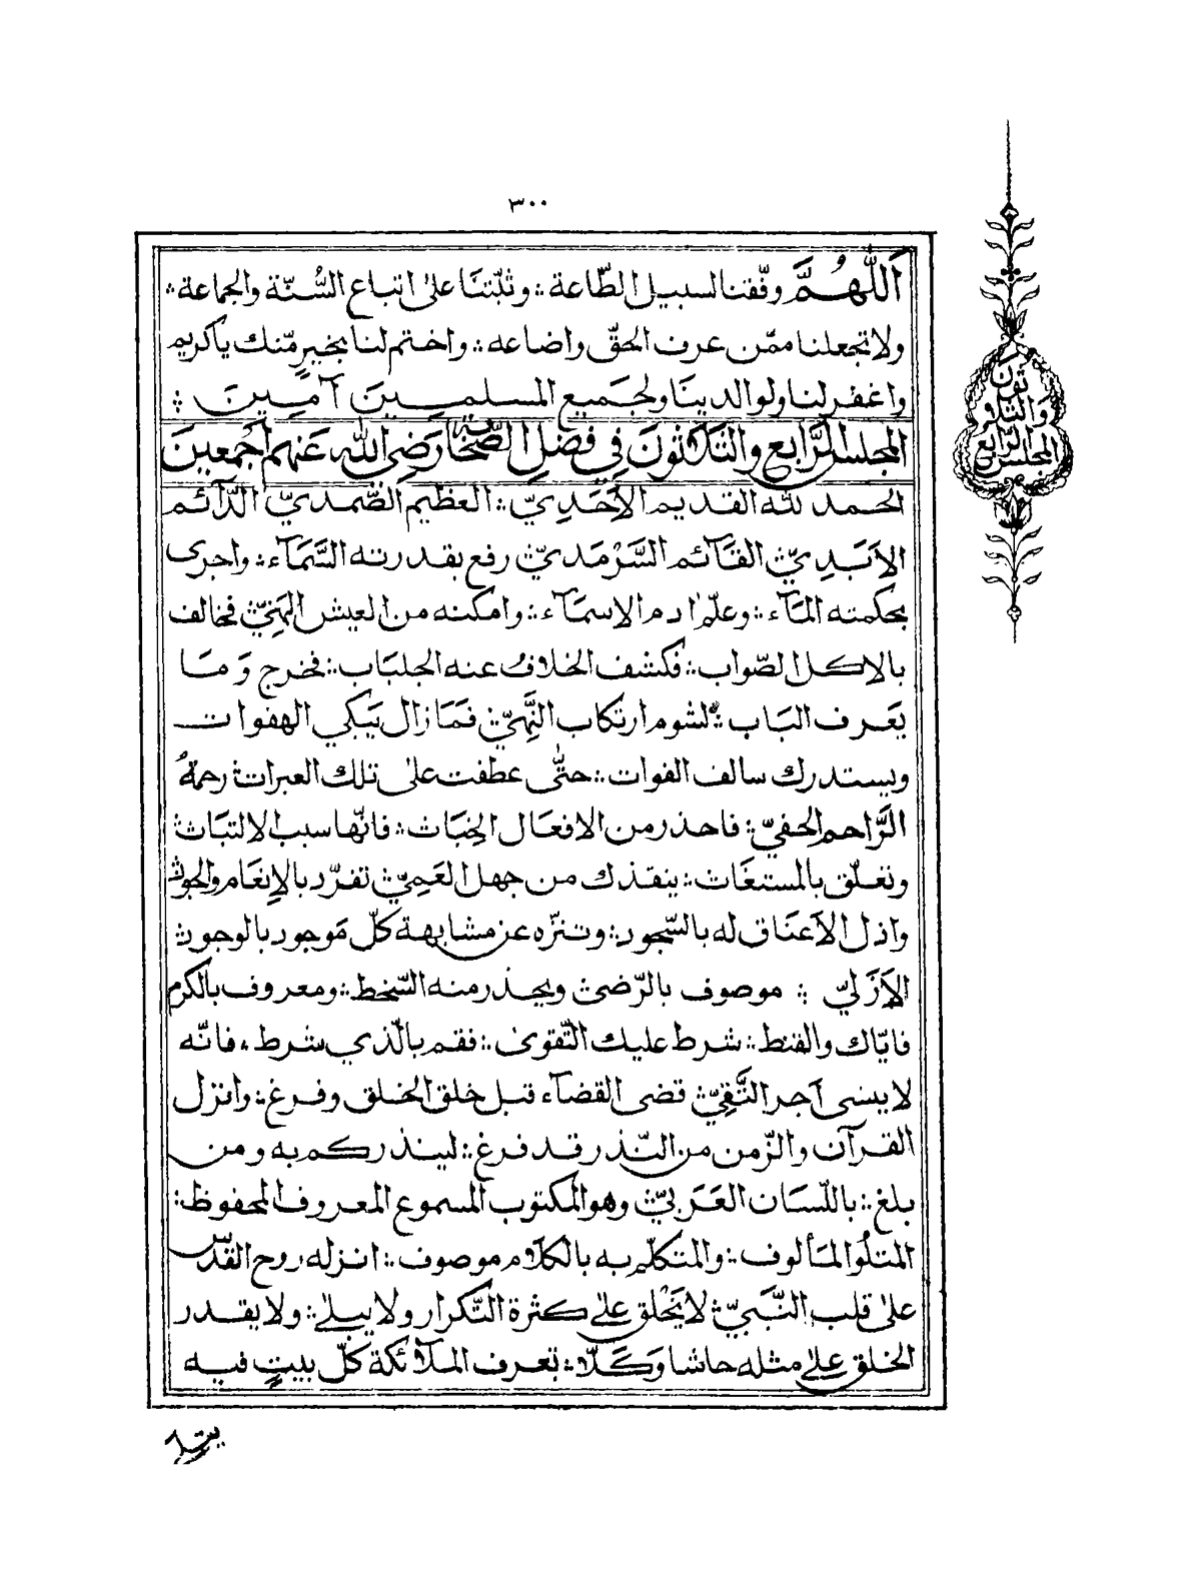 ٣٠٠
اَللّٰهُمَّ وفّقنا لسبيل الطّاعة ؞ وثبّتنَا على اتباع السُّنّة والجماعة ؞
ولا تجعلنا ممّن عرف الحقّ واضاعه ؞ واختم لنا بخيرٍ مّنك يا كريم
واغفر لنا ولوالدينَا ولجَميع المسلميِنَ آمِينَ ؞
المجلس الرَّابع والثَلاثونَ فِي فضلِ الصَّحَابَة رَضِيَ الله عَنهم اَجمعينَ
الحمد لله القديم الاَحَدِيّ ؞ العظيم الصَّمديّ الدَّآئم
الاَبَدِيّ ؞ القَآئم السَّرْمَديّ ؞ رفع بقدرته السَّمَآء ؞ واجرى
بحكمته المَآء ؞ وعلّم اٰدم الاسمَآء ؞ وامكنه من العيش الهَنِيّ ؞ فخالف
بالاكل الصّواب ؞ فكشف الخلافُ عنه الجلبَاب ؞ فخرج وَمَا
يَعرف البَاب ؞ لشوم ارتكاب النَّهِيّ ؞ فمَا زال يَبكي الهفوات
ويستدرك سالف الفوات ؞ حتّٰى عطفت على تلك العبرات ؞ رحمةُ
الرَّاحم الحفيّ ؞ فاحذر من الافعَال الخِبَاث ؞ فانّها سبب الالتبَاث ؞
وتعلّق بالمستغَاث ؞ ينقذك من جهل العَمِيّ ؞ تفرّد بالاِنعَام والجود ؞
واذل الاَعنَاق له بالسّجود ؞ وتنزّه عن مشابهة كلّ مَوجود بالوجود ؞
الاَزَليّ ؞ موصوف بالرّضىٰ ويحذر منه السّخط ؞ ومعروف بالكرم
فايّاك والقنط ؞ شرط عليك التّقوى ؞ فقم بالّذي شرط ، فانّه
لا ينسى اَجر التَّقِيّ ؞ قضى القضآء قبل خلق الخلق وفرغ ؞ وانزل
القرآن والزّمن من النّذر قد فرغ ؞ لينذركم به ومن
بلغ ؞ باللّسَان العَرَبيّ ؞ وهو المكتوب المسموع المعروف المحفوظ ؞
المتلُو المَألوف ؞ والمتكلّم به بالكلَام موصوف ؞ انزله روح القدُس
على قلب النَّبيّ ؞ لا يَخْلق على كثرة التَّكرار ولا يبلى ؞ ولا يقدر
الخلق على مثله حاشا وَكَلَّا ؞ تعرف الملَآئكة كلّ بيتٍ فيه
يتلى
المجلس الرَّابع
والثلاثون